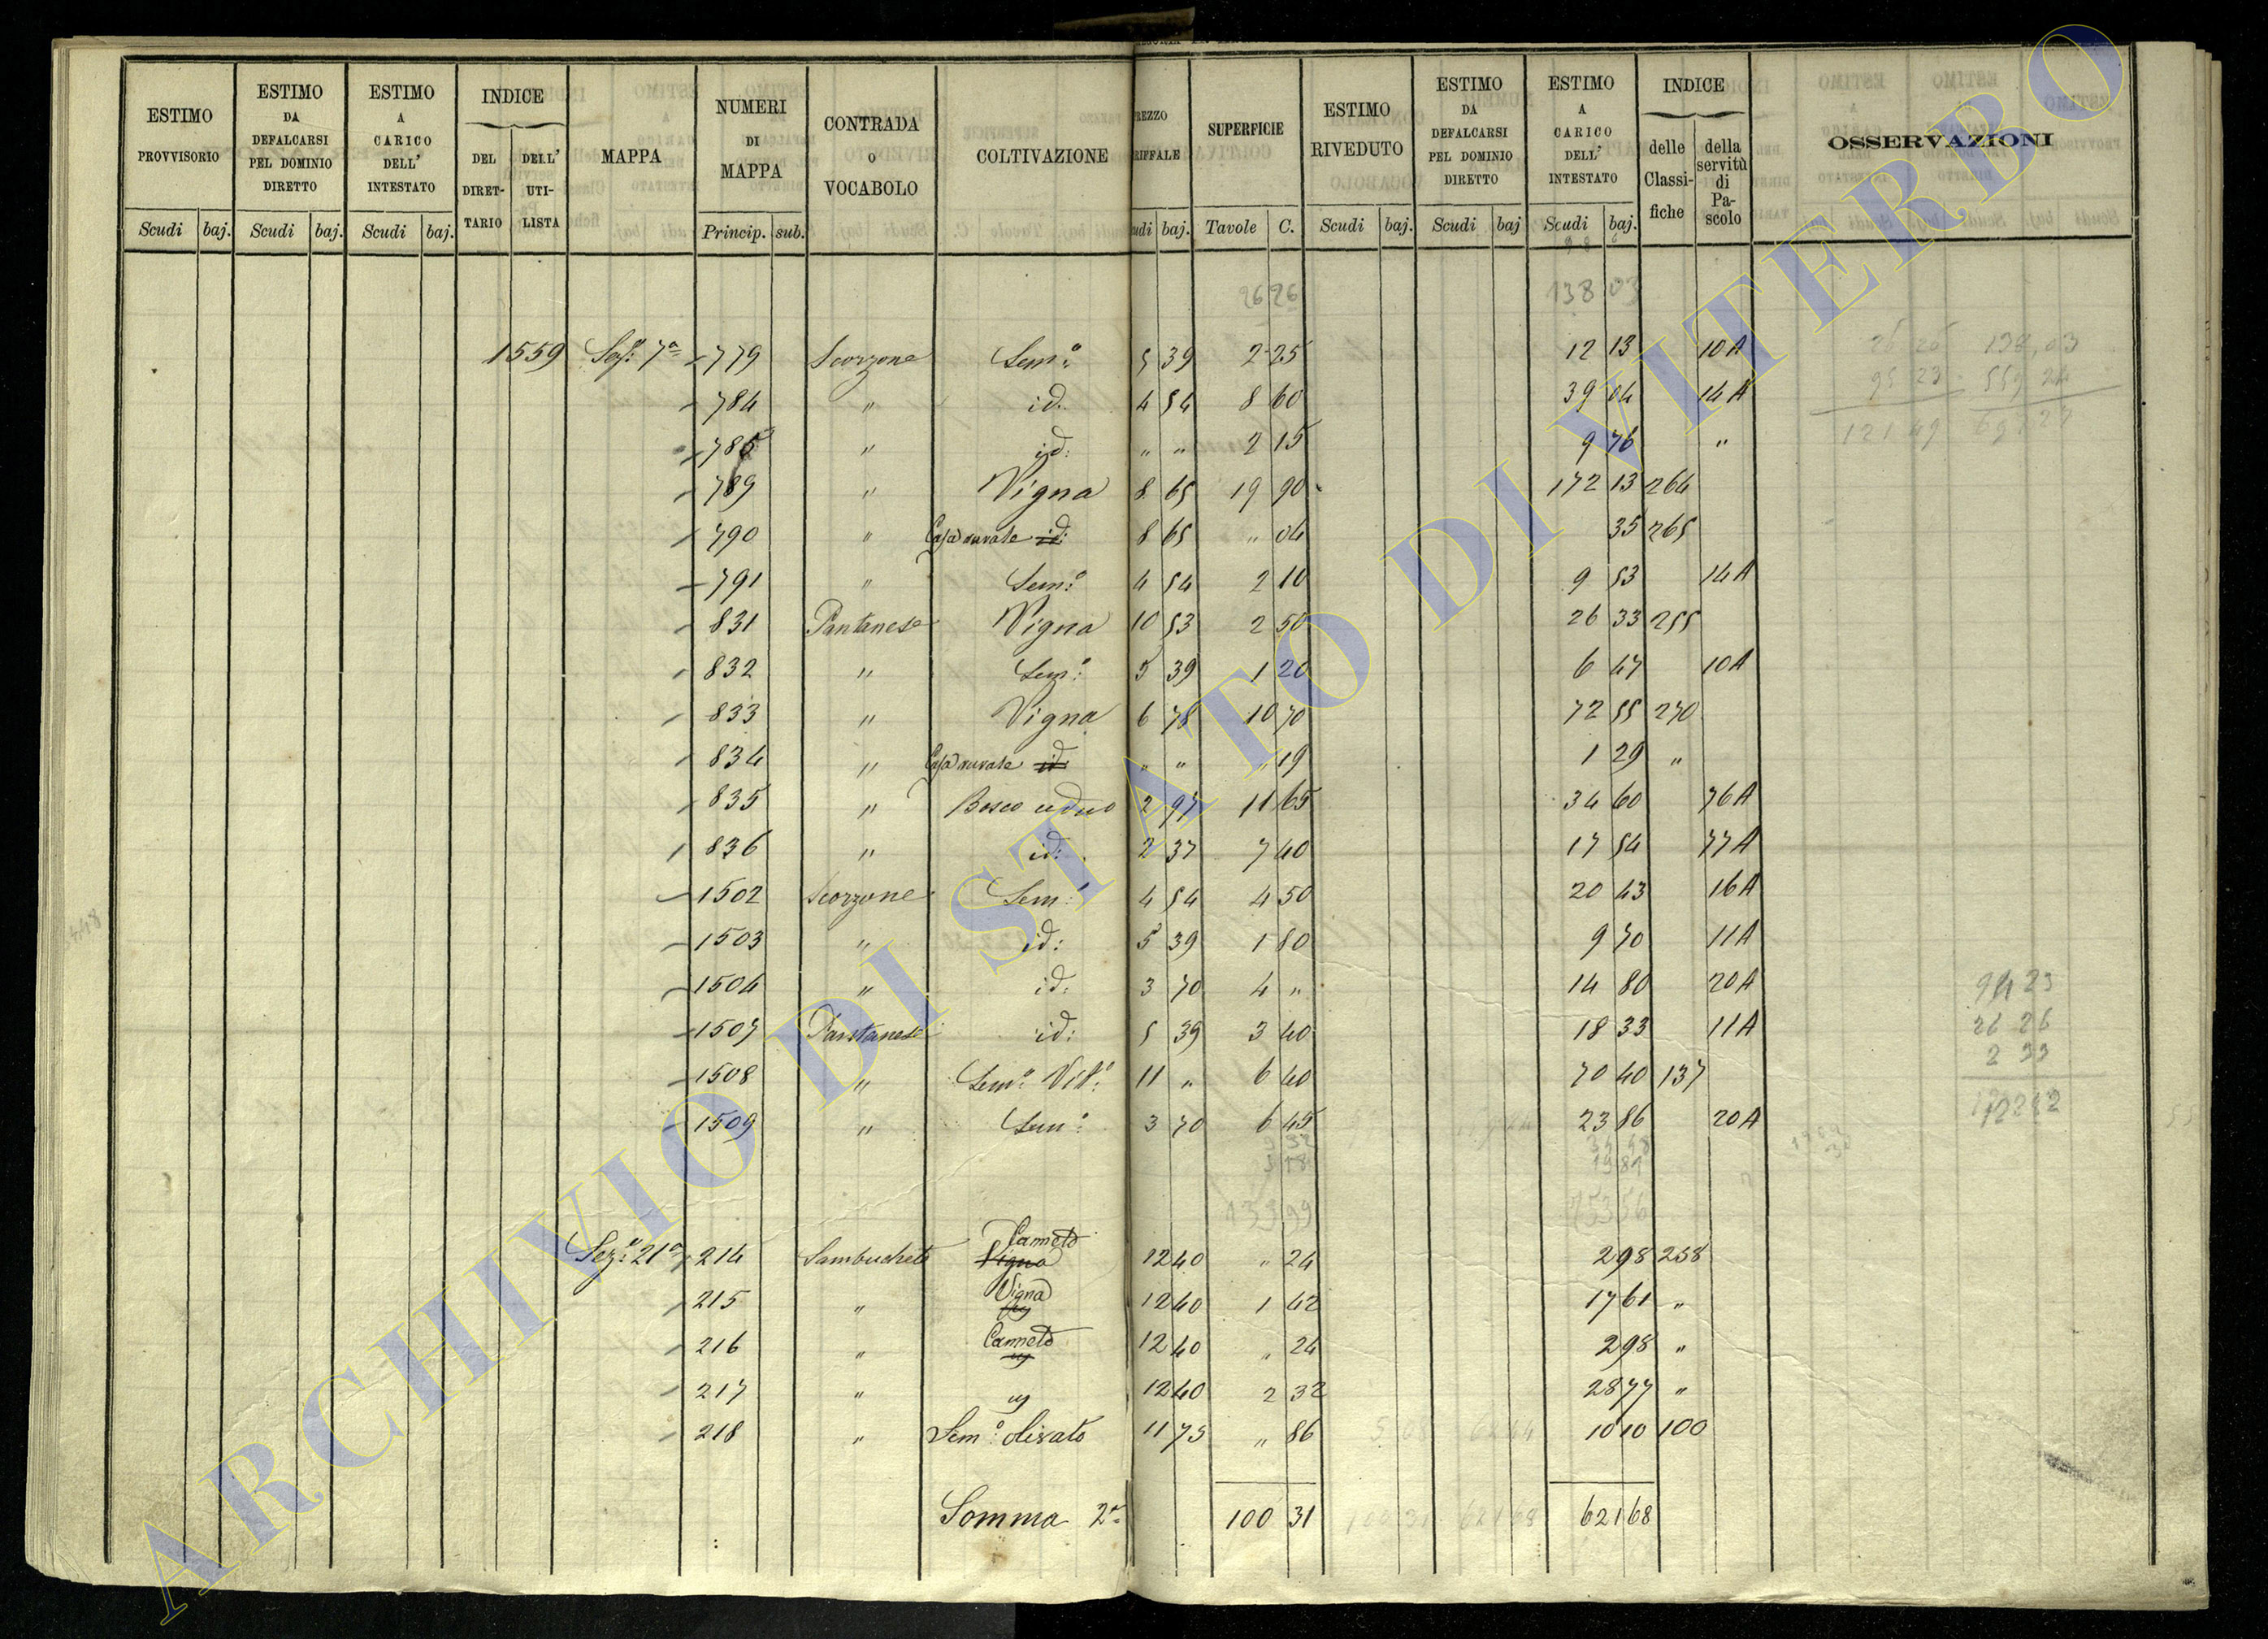 ESTIMO PROVVISORIO | ESTIMO DA DEFALCARSI PEL DOMINIO DIRETTO | ESTIMO A CARICO DELL' INTESTATO | INDICE DEL DIRETTARIO | DELL' UTILISTA | MAPPA | NUMERI DI MAPPA | CONTRADA O VOCABOLO | COLTIVAZIONE | REZZO RIFFALE | SUPERFICIE | ESTIMO RIVEDUTO | ESTIMO DA DEFALCARSI PEL DOMINIO DIRETTO | ESTIMO A CARICO DELL' INTESTATO | INDICE delle Classifiche | della servitù di Pascolo | OSSERVAZIONI
Scudi baj. | Scudi baj. | Scudi baj. | Princip. sub. | udi baj. | Tavole C. | Scudi baj. | Scudi baj | Scudi baj.
26 26 138 03
1559 Sez: 7a 779 Scorzone Sem:o 5 39 2 25 12 13 10A 26 26 138,03
784 " id. 4 54 8 60 39 04 14A 95 23 559 24
785 " id: " " 2 15 9 76 " 121 49
789 " Vigna 8 65 19 90 172 13 264
790 " Casa rurale id: 8 65 " 04 35 265
791 " Sem:o 4 54 2 10 9 53 14A
831 Pantanese Vigna 10 53 2 50 26 33 255
832 " Sem:o 5 39 1 20 6 47 10A
833 " Vigna 6 78 10 70 72 55 270
834 " Casa rurale id: " " " 19 1 29 "
835 " Bosco ceduo 2 97 11 65 34 60 76A
836 " id: 2 37 7 40 17 54 77A
1502 Scorzone Sem: 4 54 4 50 20 43 16A
1503 " id: 5 39 1 80 9 70 11A
1504 " id: 3 70 4 " 14 80 20A
1507 Pantanese id: 5 39 3 40 18 33 11A 26 26
1508 " Sem:o Vit:o 11 " 6 40 70 40 137
1509 " Sem:o 3 70 6 45 23 86 20A
133 99
Canneto
Sez: 21a 214 Sambucheto Vigna 12 40 " 24 2 98 258
Vigna
215 " 12 40 1 42 17 61 "
216 " Canneto 12 40 " 24 2 98 "
217 " 12 40 2 32 28 77 "
218 " Sem:o olivato 11 75 " 86 10 10 100
Somma 2a 100 31 100 31 621 68 621 68
ARCHIVIO DI STATO DI VITERBO